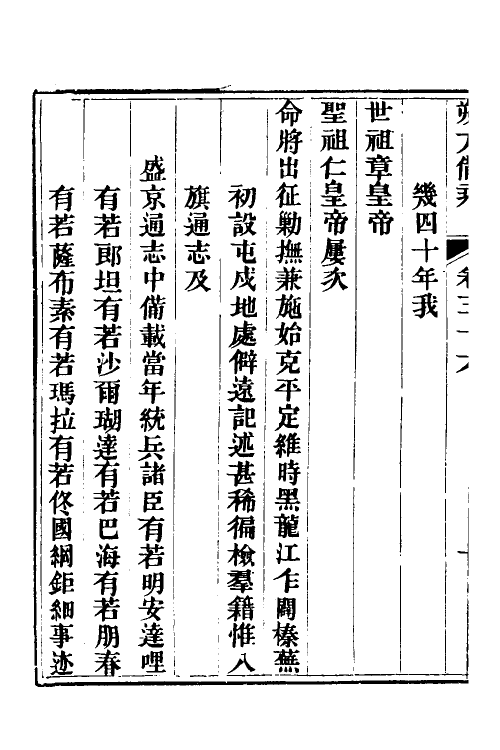 幾四十年我
世祖章皇帝
聖祖仁皇帝屢次
命將出征勦撫兼施始克平定維時黑龍江乍闢榛蕪
初設屯戍地處僻遠記述甚稀徧檢羣籍惟八
旗通志及
盛京通志中備載當年統兵諸臣有若明安達哩
有若郎坦有若沙爾瑚達有若巴海有若朋春
有若薩布素有若瑪拉有若佟國綱鉅細事迹